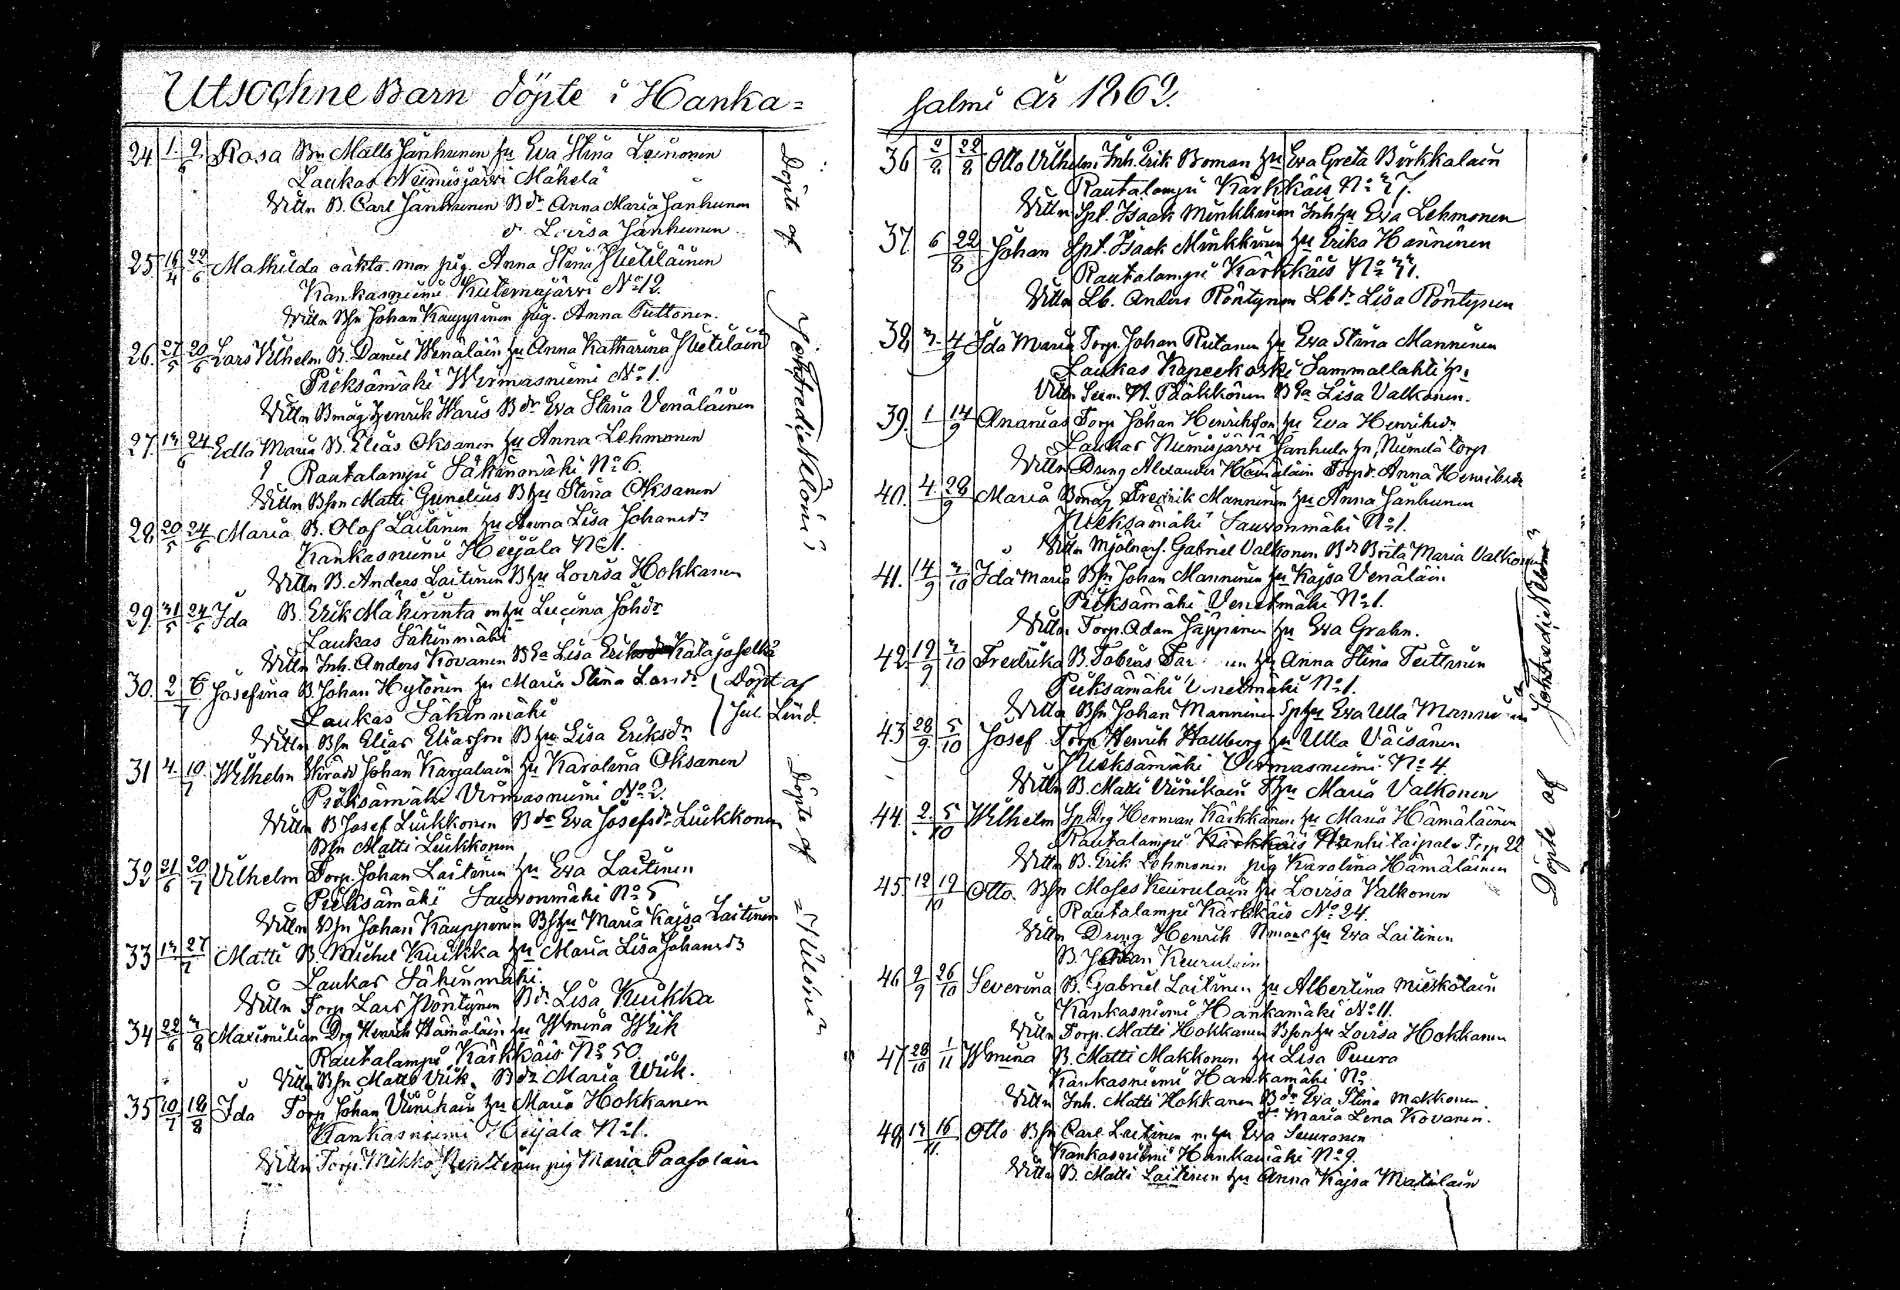 Utsochne Barn döpte i Hanka=
24 1/6 9/6 Rosa Bn Matts Janhunen hu Eva Stina Leinonen
Laukas Niemisjärvi Mäkelä
Vittn B. Carl Janhunen Bdr Anna Maria Janhunen
dr Lovisa Janhunen
25 16/4 22/6 Mathilda oäkta. mor pig. Anna Stina Hietiläinen
Kankasniemi Kutemajärvi No 12
Vittn Bsn Johan Kauppinen pig. Anna Tiittonen.
26. 27/5 20/6 Lars Vilhelm B. Daniel Wenäläin hu Anna Katharina Hietiläin
Pieksämäki Wirmasniemi No 1.
Vittn Bmåg Henrik Waris Bdr Eva Stina Venäläinen
27. 13/6 24/6 Edla Maria B. Elias Oksanen hu Anna Lehmonen
Rautalampi Säkinmäki No 6.
Vittn Bsn Matti Gunelius Bhu Stina Oksanen
28 20/5 24/6 Maria B. Olof Laitinen hu Anna Lisa Johansdr
Kankasniemi Heijala No 1.
Vittn B. Anders Laitinen Bhu Lovisa Hokkanen
29. 31/5 24/6 Ida B. Erik Mäkirinta hu Lucina Johdr
Laukas Säkinmäki
Vittn Inh. Anders Kovanen Bea Lisa Katajaselkä
30. 2/7 6/7 Josefina B. Johan Hytönen hu Maria Stina Larsdr Döpt af
Laukas Säkinmäki Jul. Lind.
Vittn Bsn Elias Eliasson Bhu Lisa Eriksdr
31 4/7 10/7 Wilhelm Johan Karjalain hu Karolina Oksanen
Pieksämäki Virmasniemi No 2.
Vittn B Josef Liukkonen Bdr Eva Josefsdr Liukkonen
Bsn Matti Liukkonen
32 21/6 20/7 Vilhelm Torp. Johan Laitinen hu Eva Laitinen
Pieksämäki Sauvonmäki No 5
Vittn Bsn Johan Kauppinen Bshu Maria Kajsa Laitinen
33 13/7 27/7 Matti B. Michel Kuikka hu Maria Lisa Johansdr
Laukas Säkinmäki.
Vittn Torp Lars Pöntynen Bdr Lisa Kuikka
34 22/6 3/8 Maximilian Drg Henrik Hämäläin hu Wmina Wiik
Rautalampi Kärkkäis No 50.
Vittn Bsn Matts Viik. Bdr Maria Wiik.
35 10/7 18/8 Ida Torp Johan Viinikain hu Maria Hokkanen
Kankasniemi Heijala No 1.
Vittn Torp. Mikko pig Maria Paasolain
Döpte af Joh Fredie Nelöni
Döpte af
salmi år 1862.
36 2/8 22/8 Otto Vilhelm Inh. Erik Boman hu Eva Greta Birkkalain
Rautalampi Kärkkäis No 37.
Vittn Spl. Isaak Minkkinen Inhhu Eva Lehmonen
37 6/8 22/8 Johan Spl. Isaak Minkkinen hu Erika Hänninen
Rautalampi Kärkkäis No 37.
Vittn Lb. Anders Pöntynen Lbdr Lisa Pöntynen
38 3/9 4/9 Ida Maria Torp. Johan Riitanen hu Eva Stina Manninen
Laukas Kapeekoski Sammallahti
Vittn N. Pääkkönen Bea Lisa Valkonen.
39. 1/9 14/9 Ananias Torp Johan Henriksson hu Eva Henriksdr
Laukas Niemisjärvi Janhula Niemelä torp
Vittn Dreng Alexander Hämäläin Torpdr. Anna Henriksdr
40. 4/9 28/9 Maria Bmåg Fredrik Manninen hu Anna Janhunen
Pieksämäki Sauvonmäki No 1.
Vittn Mjölnars. Gabriel Valkonen Bdr Brita Maria Valkonen
41. 14/9 3/10 Ida Maria Bsn Johan Manninen hu Kajsa Venäläin
Pieksämäki Venetmäki No 1.
Vittn Torp. Adam Jäppinen hu Eva Grahn.
42 19/9 3/10 Fredrika B. Tobias hu Anna Stina Teittinen
Pieksämäki Venetmäki No 1.
Vittn Bsn Johan Manninen Sphu Eva Ulla Manninen
43 28/9 5/10 Josef Torp Henrik Hallberg hu Ulla Väisänen
Pieksämäki Virmasniemi No 4
Vittn B. Matti Viinikain Thu Maria Valkonen
44. 2/10 5/10 Wilhelm Sp. Drg Herman Kärkkänen hu Maria Hämäläinen
Rautalampi Kärkkäis Hankitaipale Torp 22
Vittn B. Erik Lehmonen pig Karolina Hämäläinen
45. 12/10 19/10 Otto. Bsn Moses Keurulain hu Lovisa Valkonen
Rautalampi Kärkkäis No 24.
Vittn Dreng Henrik hu Eva Laitinen
B. Johan Keurulain
46 9/9 26/10 Severina B. Gabriel Laitinen hu Albertina Mieskolain
Kankasniemi Hankamäki No 11.
Vittn Torp. Matti Hokkanen Bsonhu Lovisa Hokkanen
47 28/10 1/11 Wmina B. Matti Makkonen hu Lisa Puura
Kankasniemi Hankamäki No
Vittn Inh. Matti Hokkanen Bdr Eva Stina Makkonen.
dr Maria Lena Kovanen.
48 13/11 16/11 Otto Bsn Carl Laitinen hu Eva Seuronen
Kankasniemi Hankamäki No 9.
Vittn B. Matti Laitinen hu Anna Kajsa Matilain
Döpte af Joh Fredie Nelöni